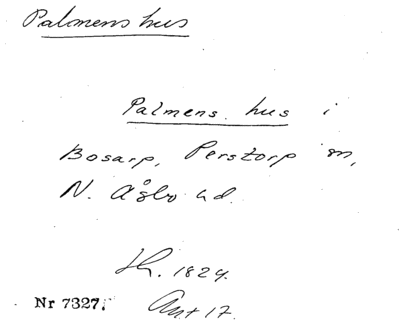 Palmens hus
Palmens hus i
Bosarp, Perstorp sn,
N. Åsbo hd.
Lh. 1824.
Ant 17.
Nr 7327.